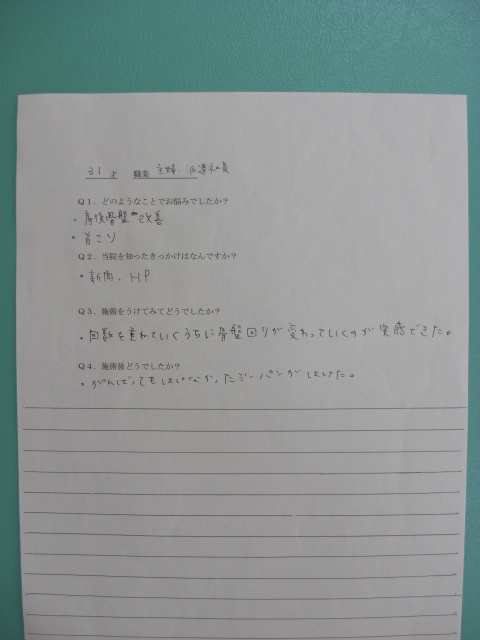 31 才 職業 主婦、派遣社員
Q1．どのようなことでお悩みでしたか？
・産後骨盤の改善
・首こり
Q2．当院を知ったきっかけはなんですか？
・新聞、HP
Q3．施術をうけてみてどうでしたか？
・回数を重ねていくうちに骨盤回りが変わっていくのが実感できた。
Q4．施術後どうでしたか？
・がんばってもはけなかったジーパンがはけた。